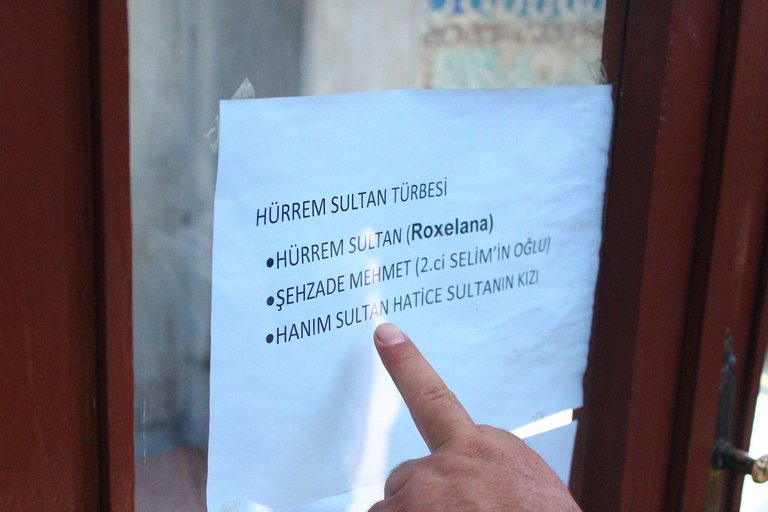 HÜRREM SULTAN TÜRBESİ
•HÜRREM SULTAN (Roxelana)
•ŞEHZADE MEHMET (2.ci SELİM'İN OĞLU)
•HANIM SULTAN HATİCE SULTANIN KIZI